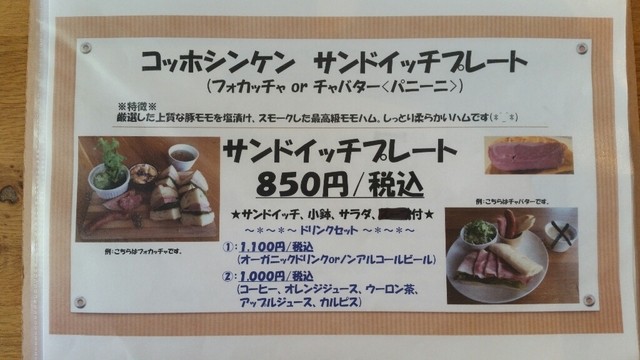 コッホシンケン サンドイッチプレート
(フォカッチャ or チャバター<パニーニ>)
※特徴※
厳選した上質な豚モモを塩漬け、スモークした最高級モモハム、しっとり柔らかいハムです(*^_^*)
サンドイッチプレート
850円/税込
★サンドイッチ、小鉢、サラダ、付★
～*～*～ ドリンクセット ～*～*～
①:1,100円/税込
(オーガニックドリンクorノンアルコールビール)
②:1,000円/税込
(コーヒー、オレンジジュース、ウーロン茶、
アップルジュース、カルピス)
例:こちらはフォカッチャです。
例:こちらはチャバターです。